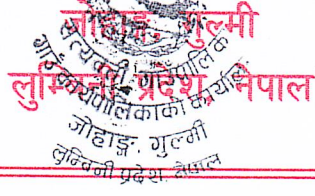 जोहाङ, गुल्मी
लुम्बिनी प्रदेश, नेपाल
सत्यवती गाउँपालिका
गाउँ कार्यपालिकाको कार्यालय
जोहाङ्ग, गुल्मी
लुम्बिनी प्रदेश, नेपाल